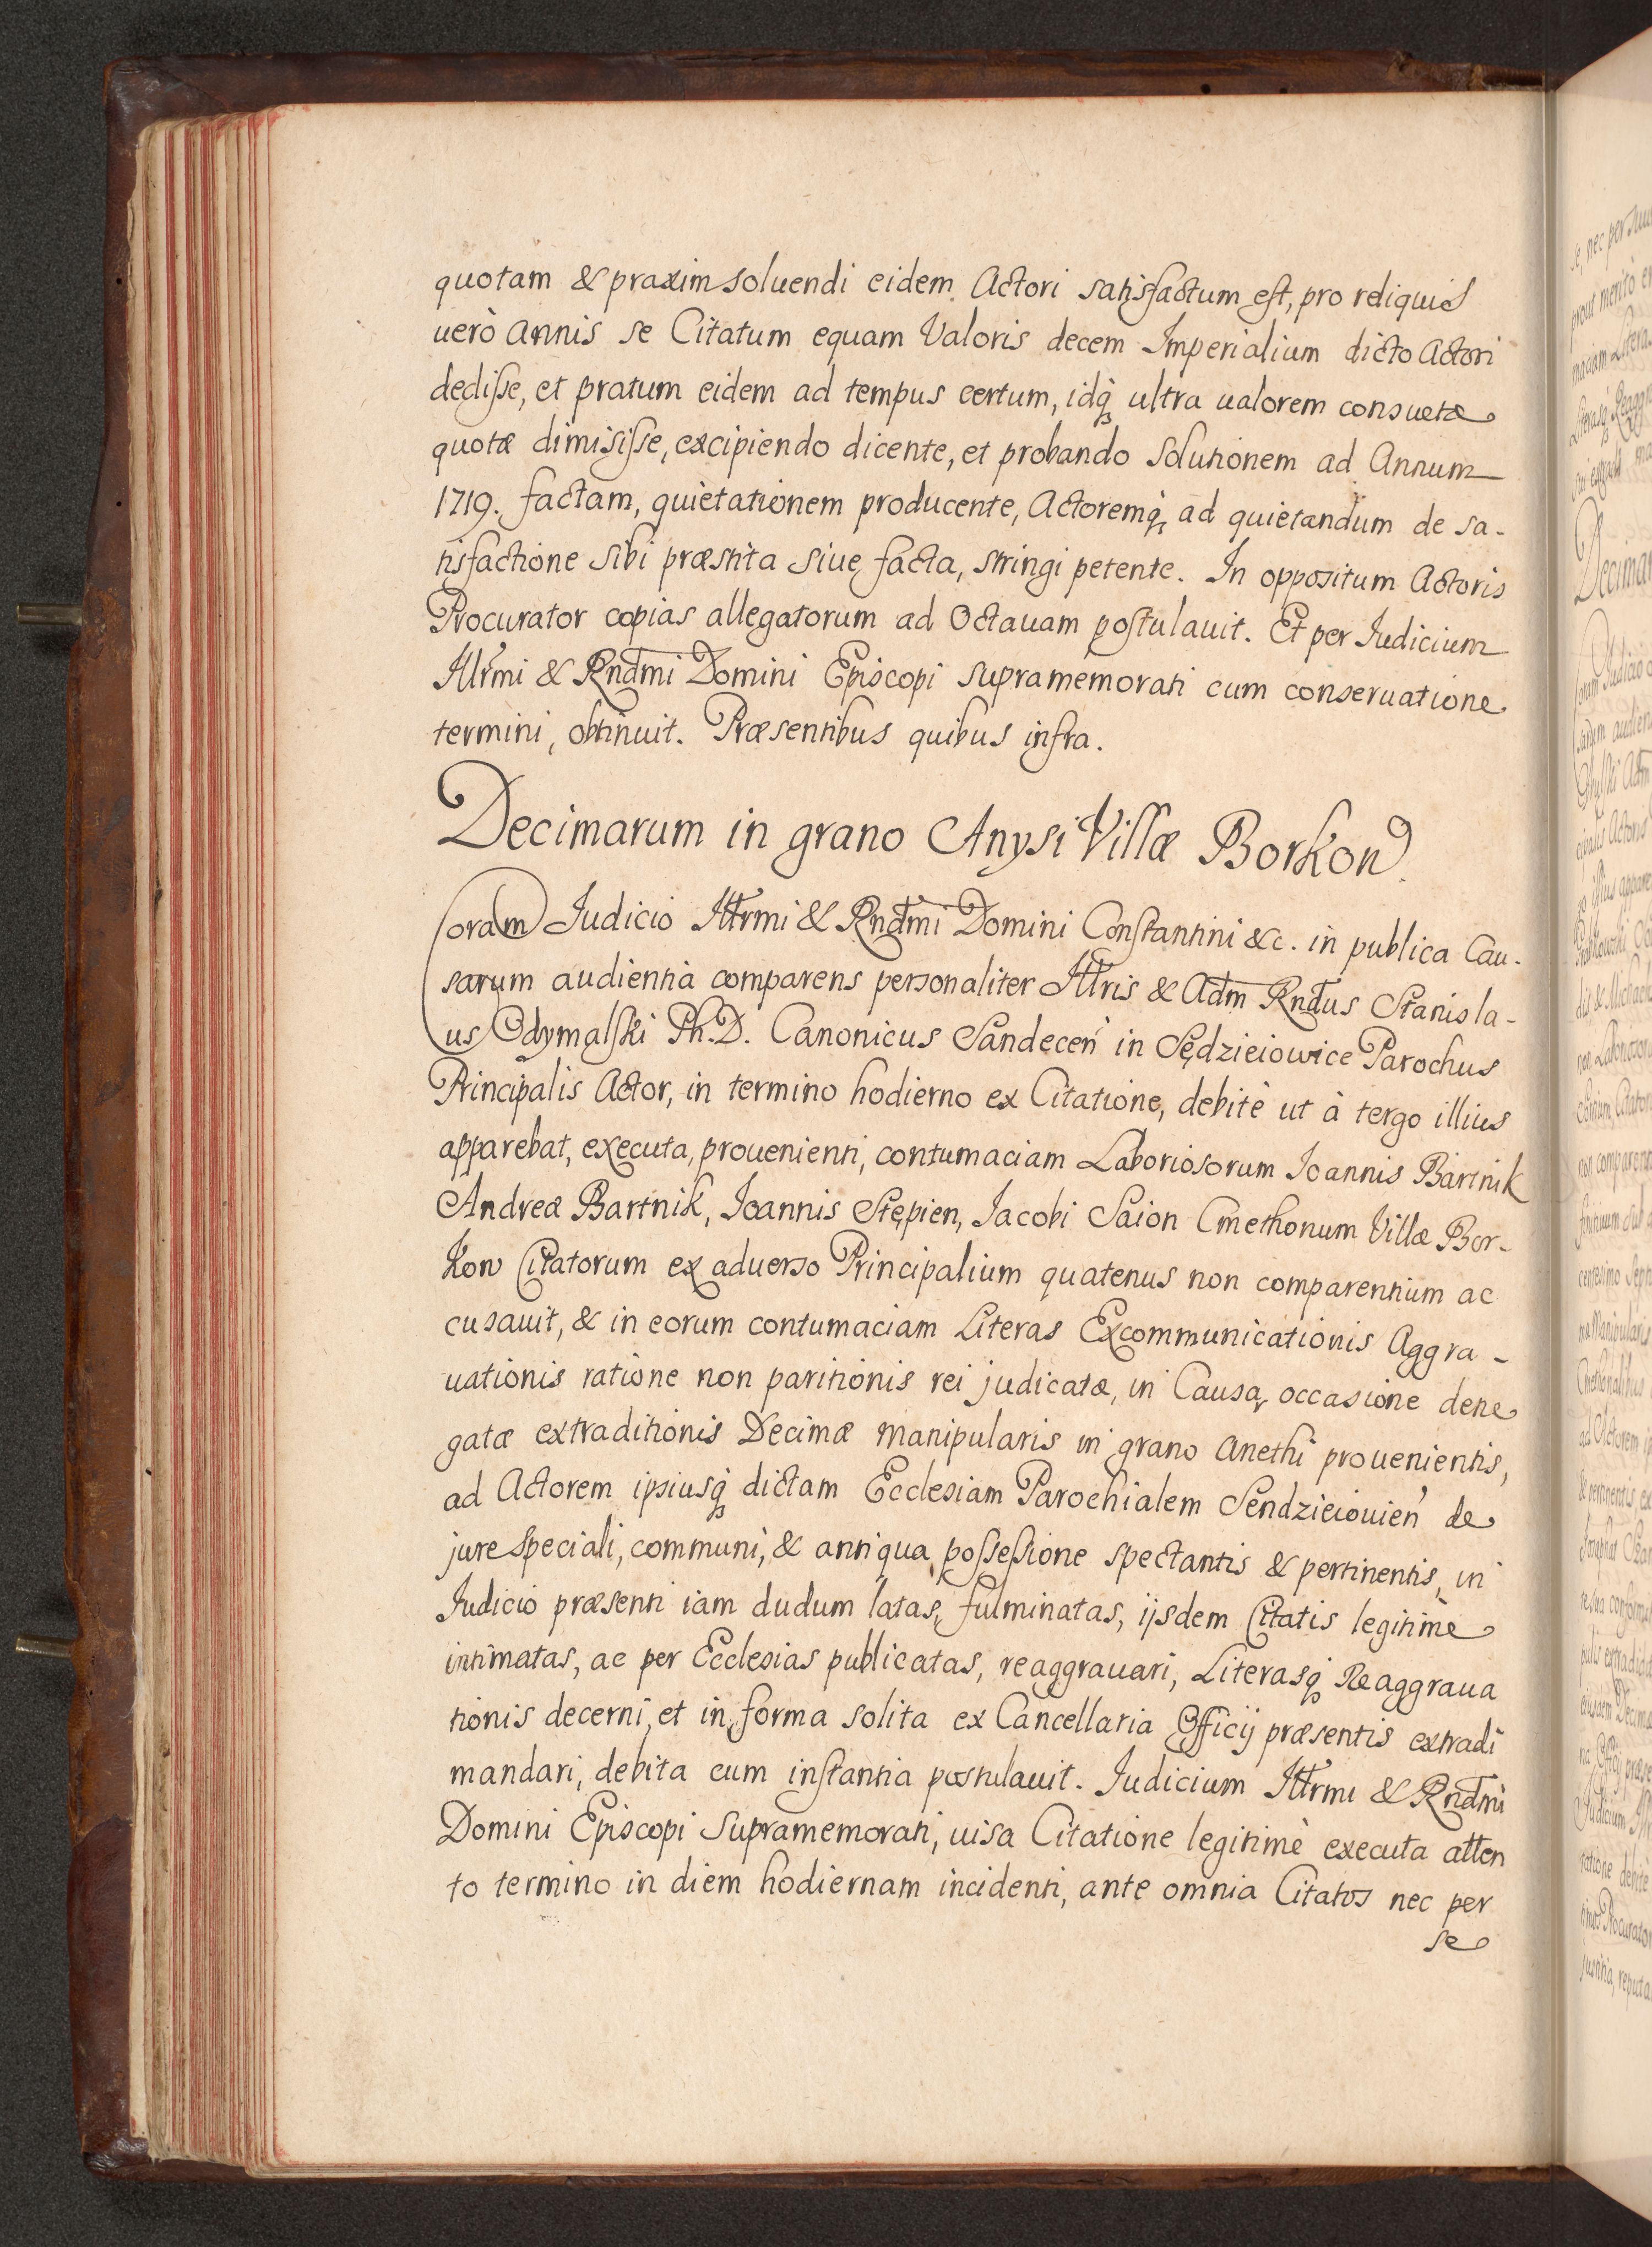 quotam & praxim soluendi eidem Actori satisfactum est, pro reliquis
uerò Annis se Citatum equam Valoris decem Imperialium dicto Actori
dedisse, et pratum eidem ad tempus certum, idq̃ ultra ualorem consuetæ
quotæ dimisisse, excipiendo dicente, et probando solutionem ad Annum
1719. factam, quietationem producente, Actoremq̃ ad quietandum de sa-
tisfactione sibi præstita siue facta, stringi petente. In oppositum Actoris
Procurator copias allegatorum ad Octauam postulauit. Et per Iudicium
Illrm̃i & Rnd̃mi Domini Episcopi supramemorati cum conseruatione
termini, obtinuit. Præsentibus quibus infra.
Decimarum in grano Anysi Villæ Borkow
Coram Iudicio Illr̃mi & Rnd̃mi Domini Constantini &c. in publica Cau-
sarum audientia comparens personaliter Illr̃is & Adm̃ Rnd̃us Stanisla-
us Odymalski Ph.D. Canonicus Sandeceń in Sędzieiowice Parochus
Principalis Actor, in termino hodierno ex Citatione, debitè ut à tergo illius
apparebat, executa, prouenienti, contumaciam Laboriosorum Ioannis Bartnik
Andreæ Bartnik, Ioannis Stępien, Iacobi Saion Cmethonum Villæ Bor-
kow Citatorum ex aduerso Principalium quatenus non comparentium ac
cusauit, & in eorum contumaciam Literas Excommunicationis Aggra-
uationis ratione non paritionis rei judicatæ, in Causa occasione dene
gatæ extraditionis Decimæ manipularis in grano Anethi prouenientis,
ad Actorem ipsiusq̃ dictam Ecclesiam Parochialem Sendzieiouień de
jure speciali, communi, & antiqua possessione spectantis & pertinentis, in
Iudicio præsenti iam dudum latas, fulminatas, ijsdem Citatis legitimè
intimatas, ac per Ecclesias publicatas, reaggrauari, Literasq̃ Reaggraua
tionis decerni, et in forma solita ex Cancellaria Officij præsentis extradi
mandari, debita cum instantia postulauit. Iudicium Illr̃mi & Rnd̃mi
Domini Episcopi supramemorati, uisa Citatione legitimè executa atten
to termino in diem hodiernam incidenti, ante omnia Citatos nec per
se